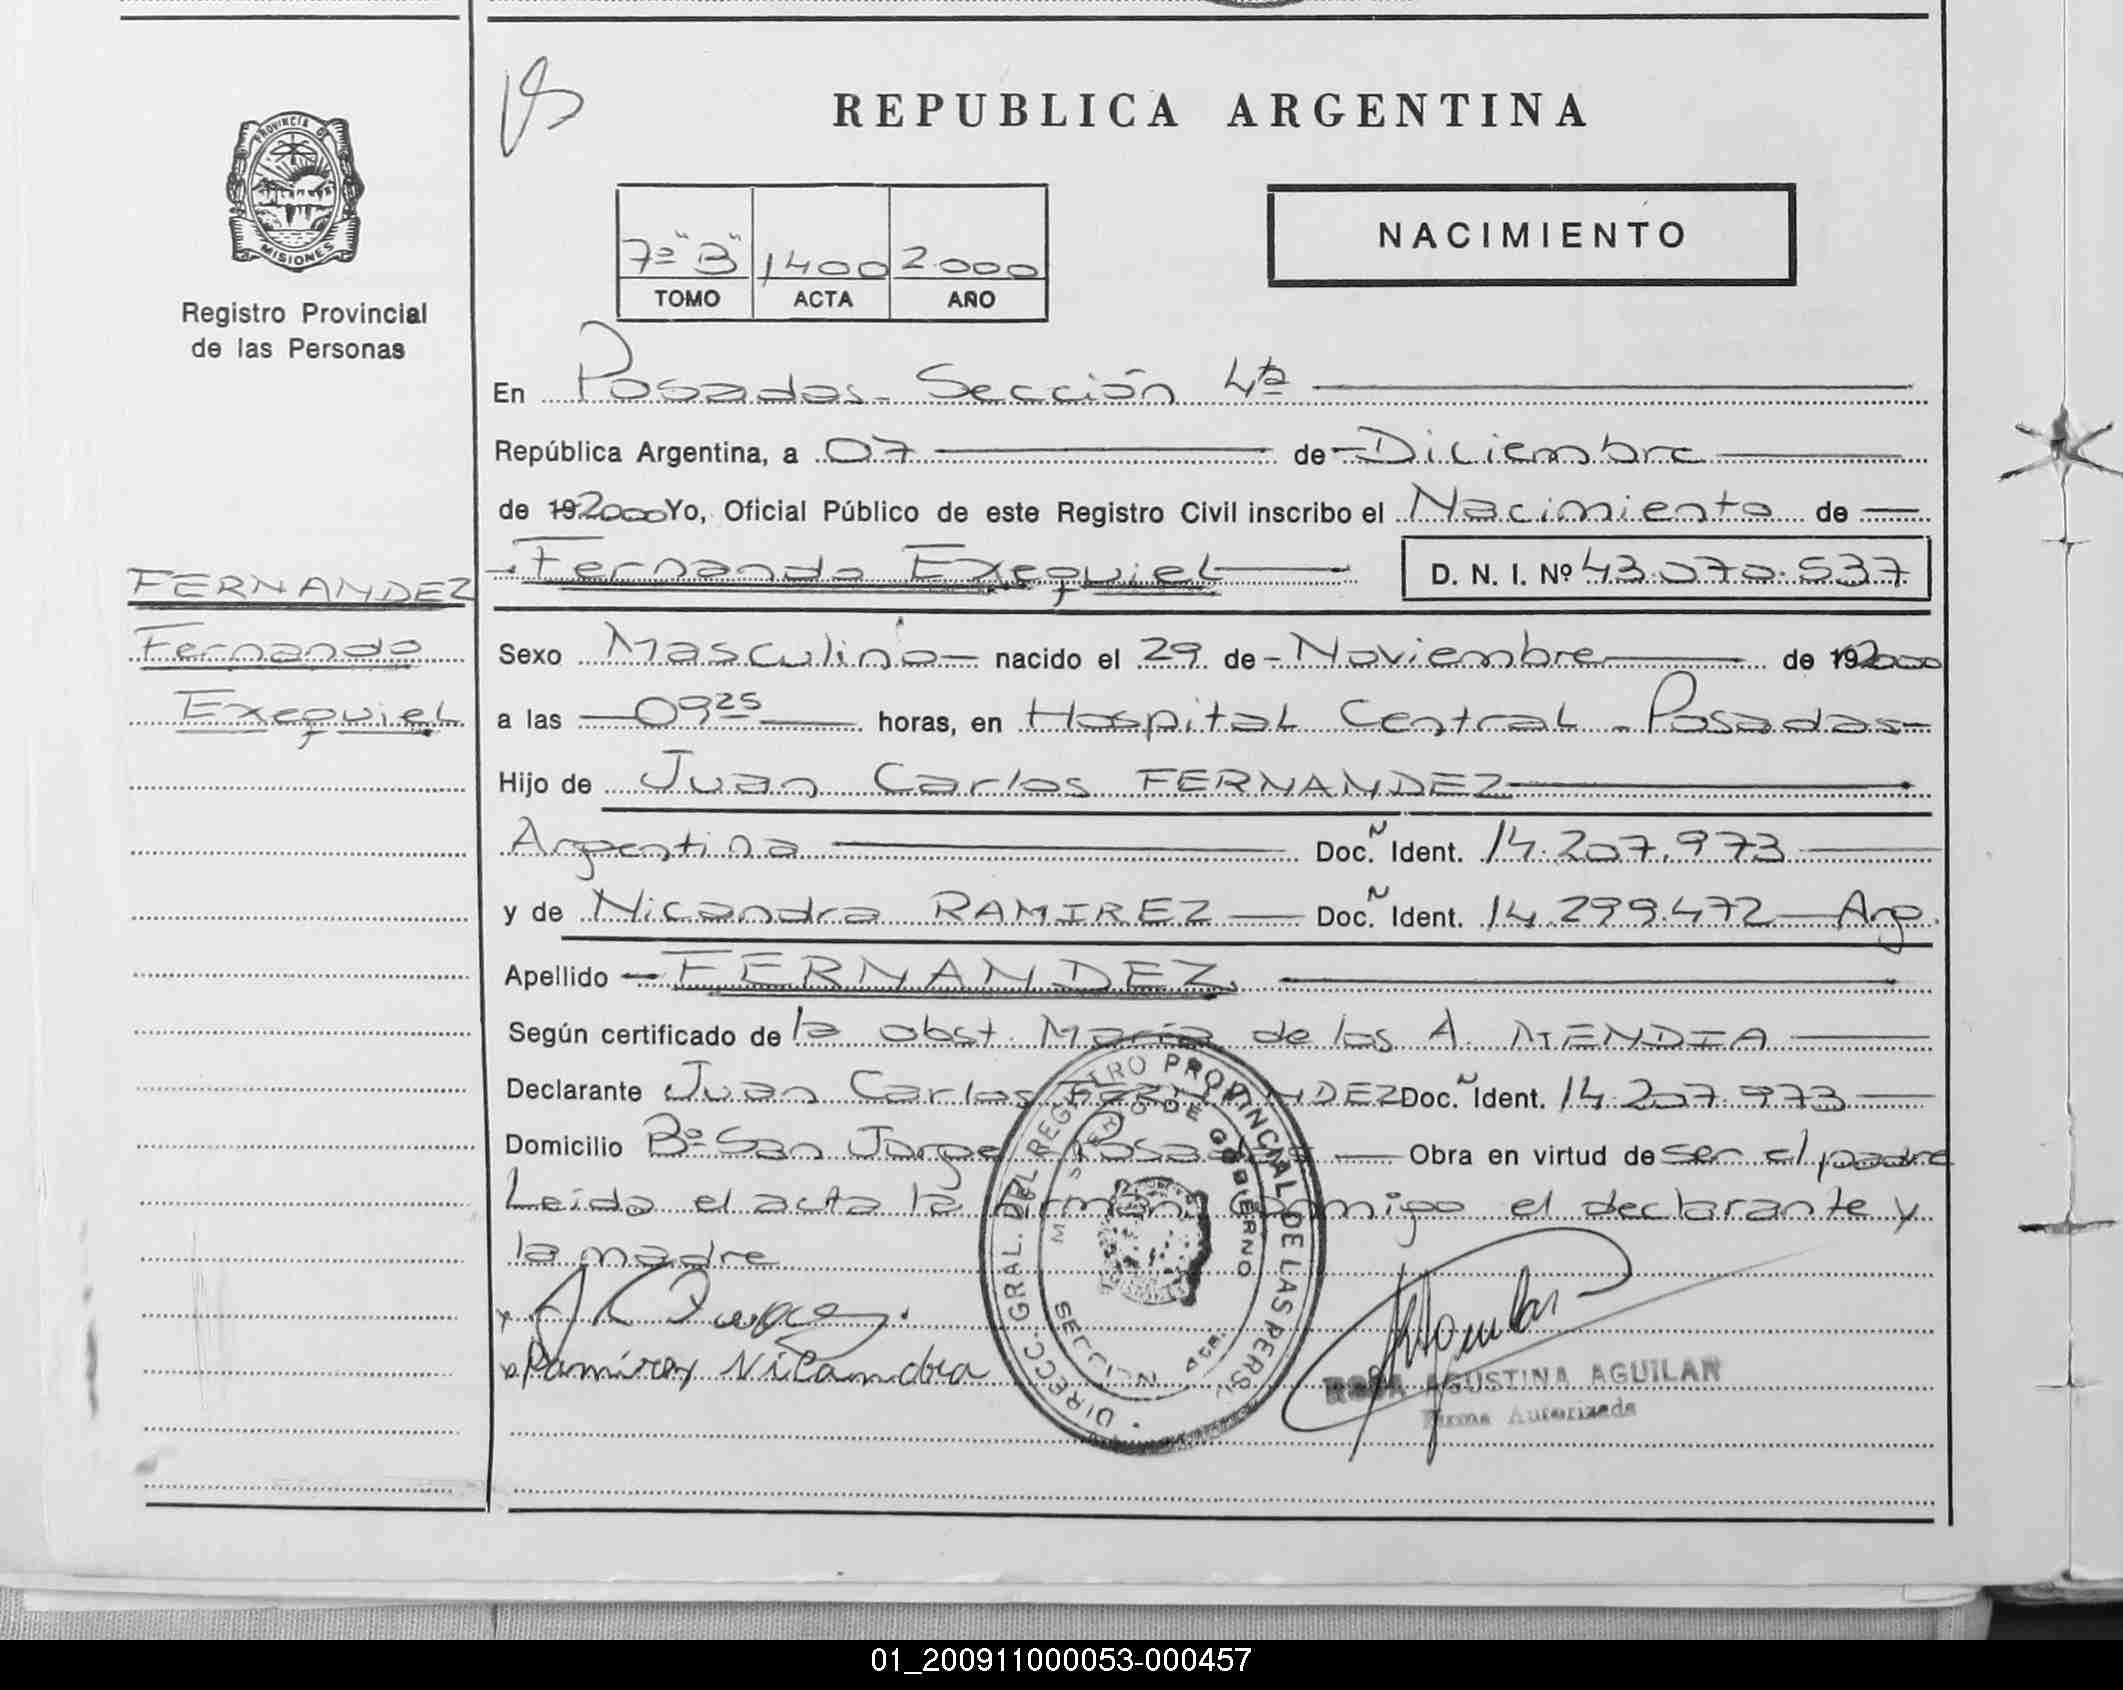 REPUBLICA ARGENTINA
PROVINCIA DE
MISIONES
Registro Provincial
de las Personas
7º "B" 1400 2.000
TOMO ACTA AÑO
NACIMIENTO
En Posadas - Sección 4ta
República Argentina, a 07 de Diciembre
de 192000 Yo, Oficial Público de este Registro Civil inscribo el Nacimiento de
Fernando Exequiel D. N. I. Nº 43.070.537
FERNANDEZ
Fernando
Exequiel
Sexo Masculino nacido el 29 de Noviembre de 192000
a las 09 25 horas, en Hospital Central - Posadas
Hijo de Juan Carlos FERNANDEZ
Argentina Doc. Ñ Ident. 14.207.973
y de Nicandra RAMIREZ Doc. Ñ Ident. 14.299.472 Arg.
Apellido FERNANDEZ
Según certificado de la obst. María de los A. MENDIA
Declarante Juan Carlos FERNANDEZ Doc. Ñ Ident. 14.207.973
Domicilio Bº San Jorge Posadas Obra en virtud de ser el padre
Leida el acta la firman conmigo el declarante y
la madre
Ramirez Nicandra
DIRECC. GRAL. DEL REGISTRO PROVINCIAL DE LAS PERS.
MISTERIO DE GOBIERNO
SECCION 4ta.
ROSA AGUSTINA AGUILAR
Firma Autorizada
01_200911000053-000457